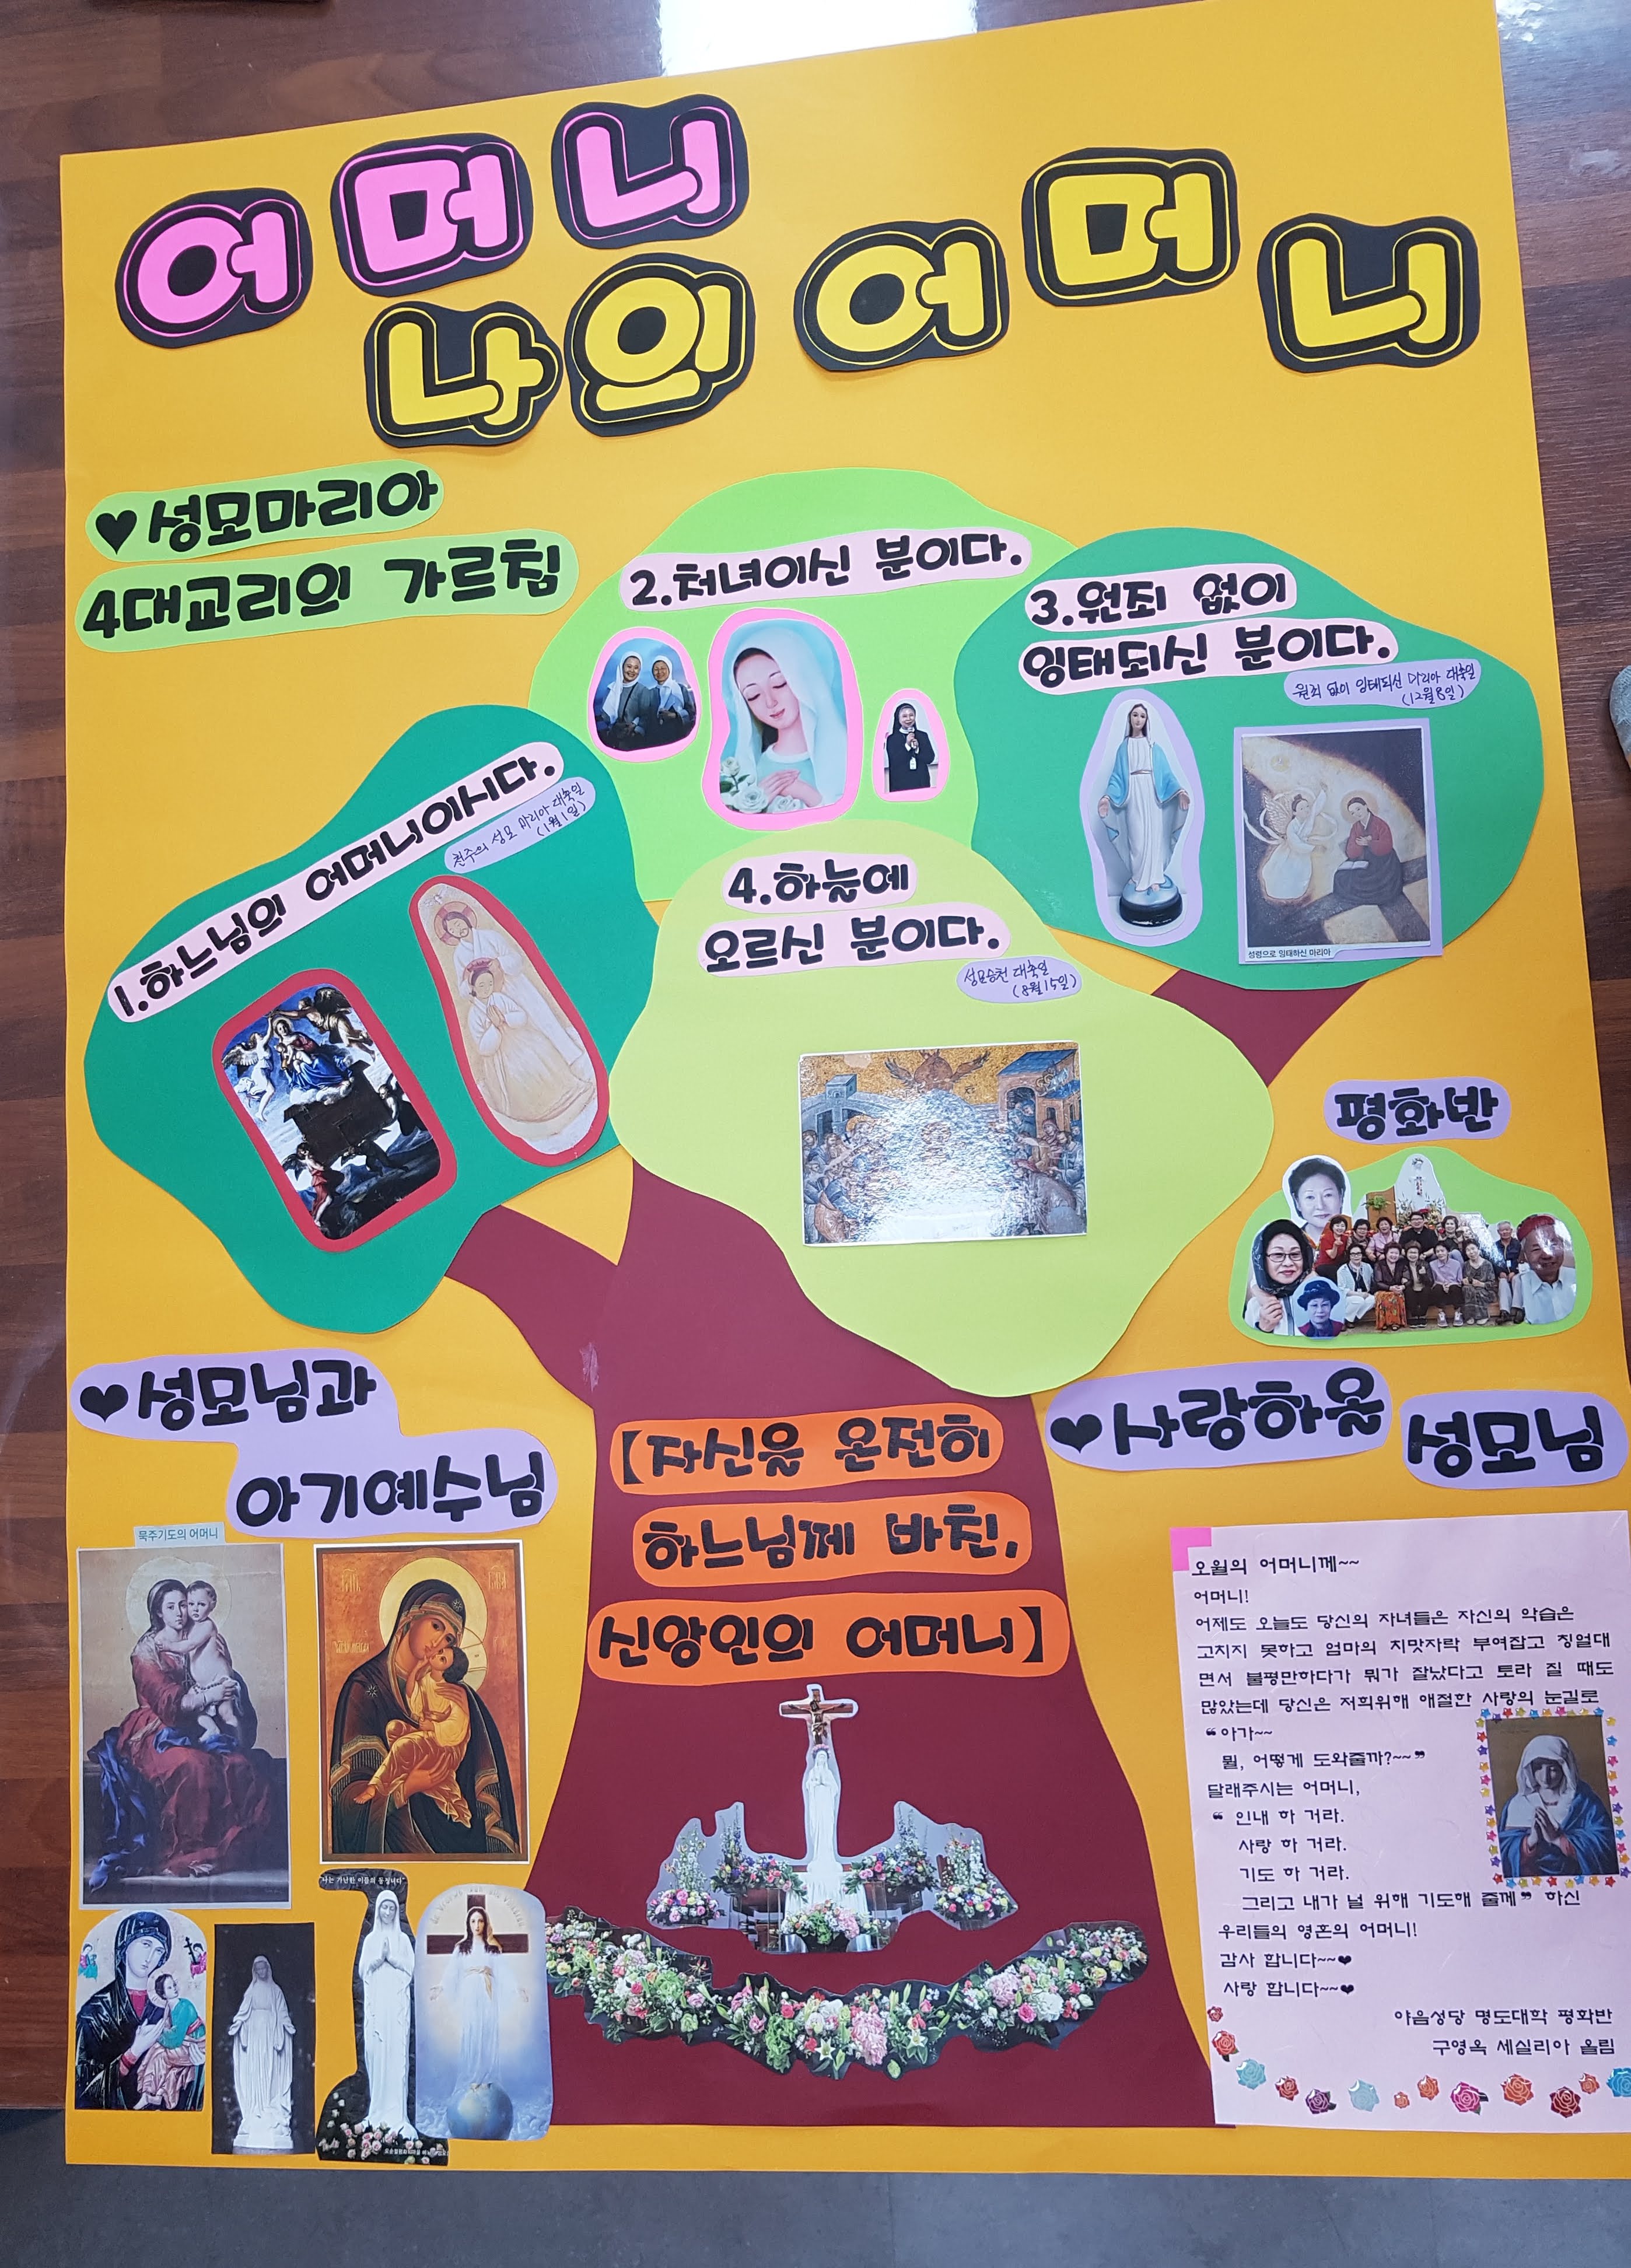 어머니
나의 어머니
♥성모마리아
4대교리의 가르침
1.하느님의 어머니이시다.
천주의 성모 마리아 대축일
(1월1일)
2.처녀이신 분이다.
3.원죄 없이
잉태되신 분이다.
원죄 없이 잉태되신 마리아 대축일
(12월8일)
성령으로 잉태하신 마리아
4.하늘에
오르신 분이다.
성모승천 대축일
(8월15일)
평화반
♥성모님과
아기예수님
묵주기도의 어머니
"나는 가난한 이들의 동정녀다"
【자신을 온전히
하느님께 바친,
신앙인의 어머니】
♥사랑하올 성모님
오월의 어머니께~~
어머니!
어제도 오늘도 당신의 자녀들은 자신의 악습은
고치지 못하고 엄마의 치맛자락 부여잡고 칭얼대
면서 불평만하다가 뭐가 잘났다고 토라 질 때도
많았는데 당신은 저희위해 애절한 사랑의 눈길로
❝아가~~
뭘, 어떻게 도와줄까?~~❞
달래주시는 어머니,
❝ 인내 하 거라.
사랑 하 거라.
기도 하 거라.
그리고 내가 널 위해 기도해 줄께❞ 하신
우리들의 영혼의 어머니!
감사 합니다~~❤
사랑 합니다~~❤
야음성당 명도대학 평화반
구영옥 세실리아 올림